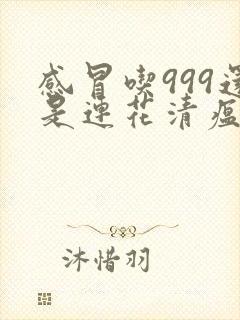 感冒喫999還
是連花清瘟
沐惜羽